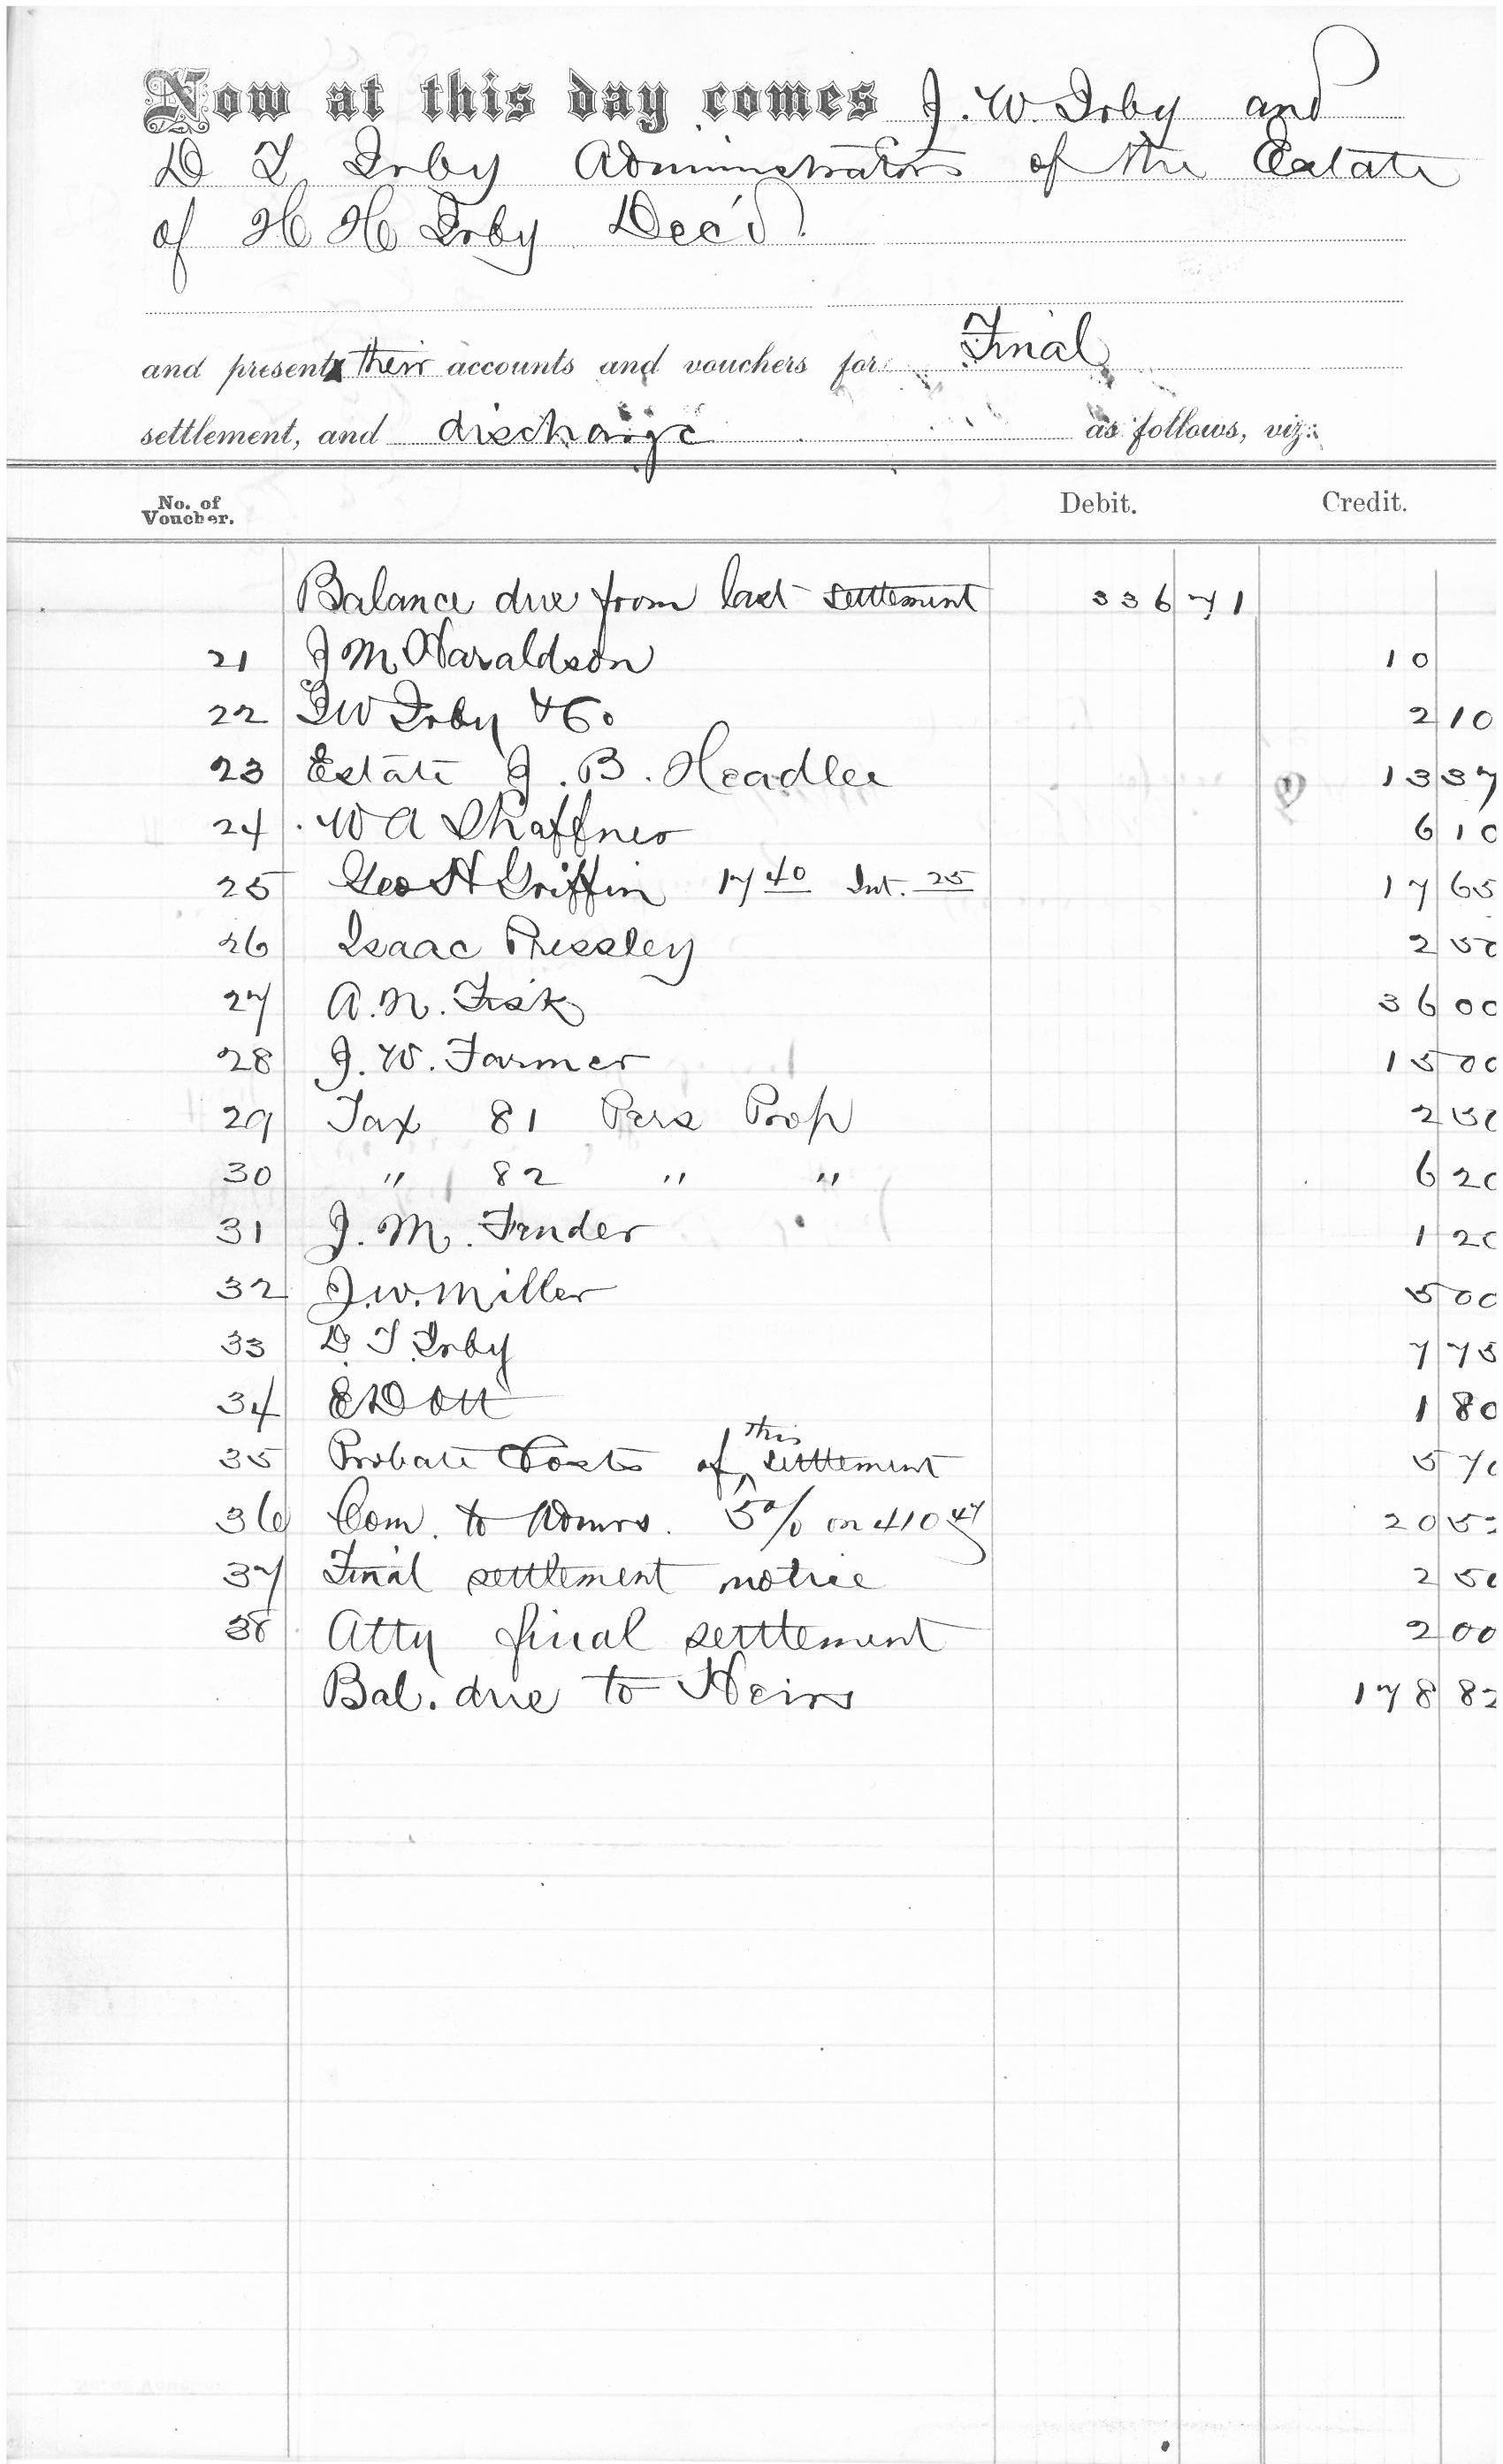 Now at this day comes J. W. Irby and
D T Irby Administrators of the Estate
of H H Irby Dec'd.
and present their accounts and vouchers for Final
settlement, and discharge as follows, viz:
No. of Voucher. Debit. Credit.
Balance due from last settlement 336 71
21 J M Haraldson 10
22 J W Irby & Co 2 10
23 Estate J. B. Headlee 13 37
24 W A Shaffner 6 10
25 Geo H Griffin 17 40 Int. 25 17 65
26 Isaac Pressley 2 50
27 A. N. Fisk 36 00
28 J. W. Farmer 15 00
29 Tax 81 Pers Prop 2 50
30 " 82 " " 6 20
31 J. M. 1 20
32 J. W. Miller 5 00
33 D T Irby 7 75
34 E D Ott 1 80
35 Probate Costs of this settlement 5 70
36 Com. to Admrs. 5% on 410 47 20 52
37 Final settlement notice 2 50
38 Atty final settlement 2 00
Bal. due to Heirs 178 82